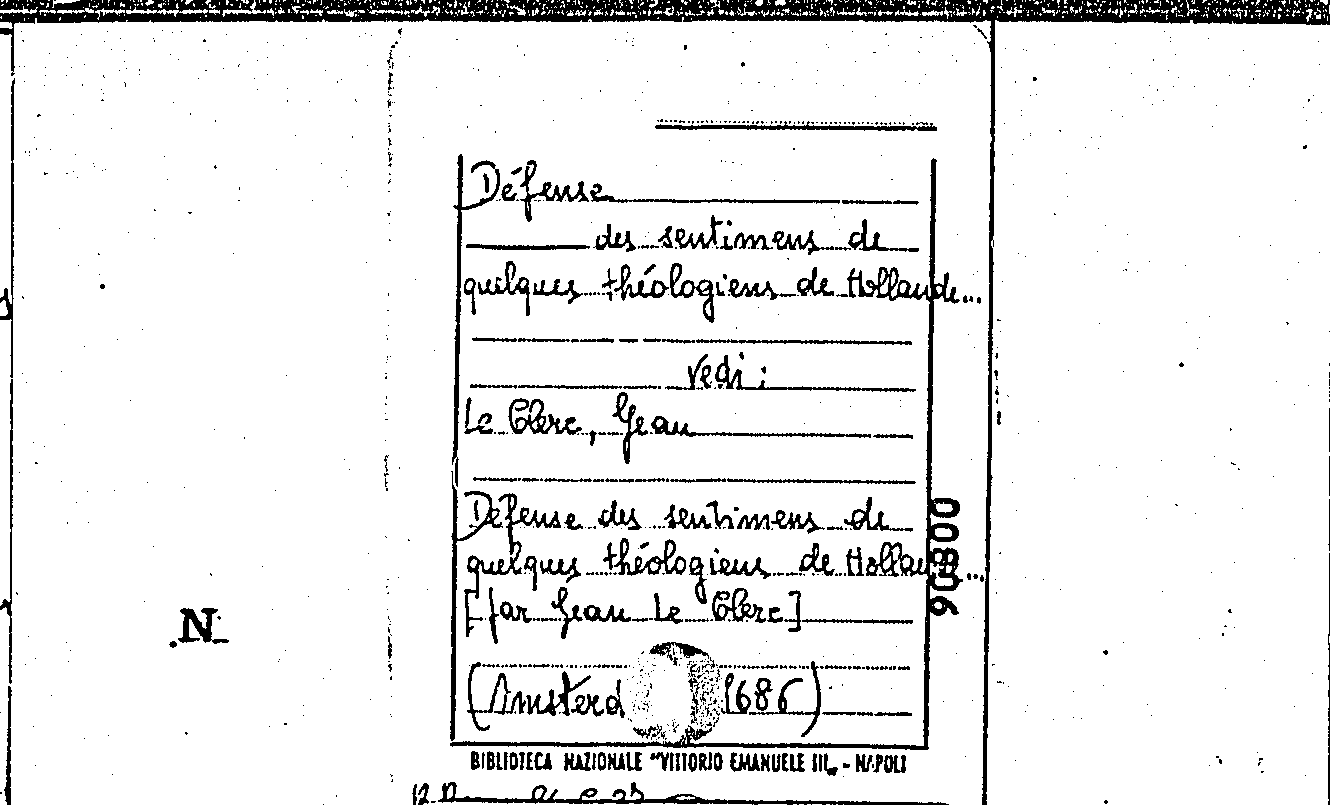 Défense
des sentimens de
quelques théologiens de Hollande...
vedi:
Le Clerc, Jean
Défense des sentimens de
quelques théologiens de Hollan...
[par Jean Le Clerc]
(Amsterd 1686)
BIBLIOTECA NAZIONALE "VITTORIO EMANUELE III„ - NAPOLI
90800
N